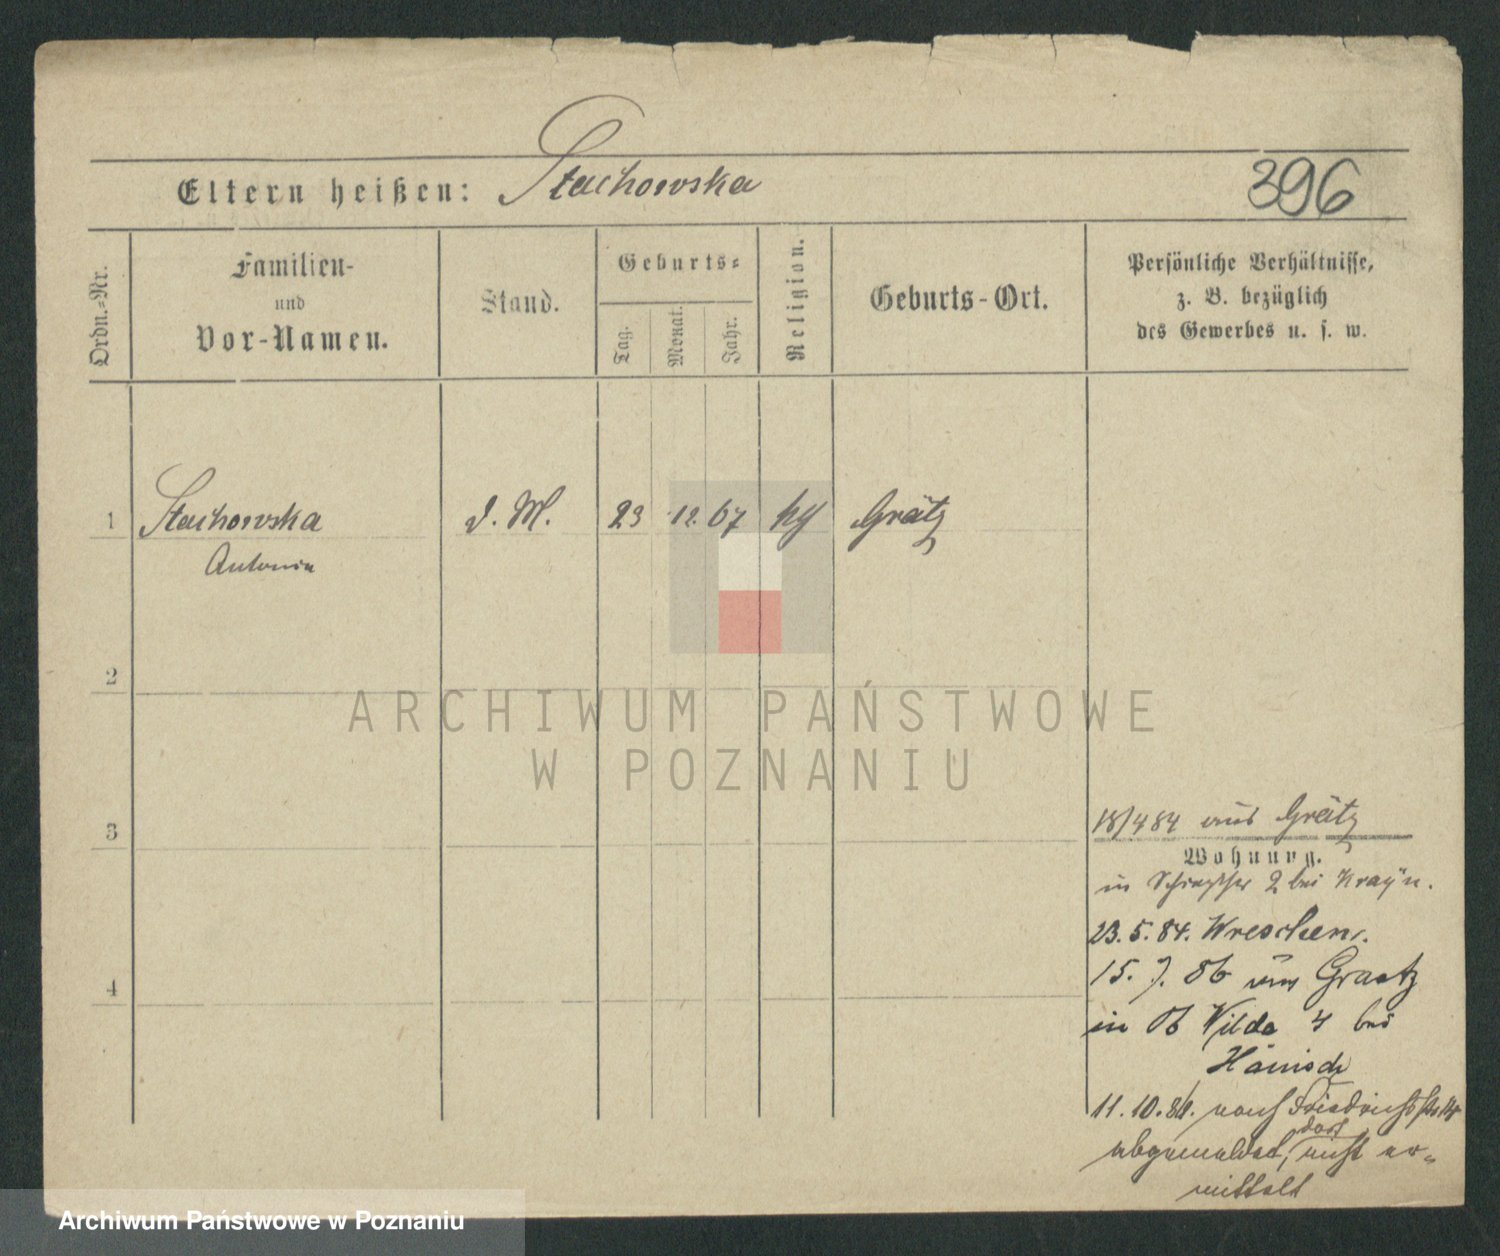 Eltern heißen: Stachowska
396
Ordn.-Nr.
Familien-
und
Vor-Namen.
Stand.
Geburts-
Tag.
Monat.
Jahr.
Religion.
Geburts-Ort.
Persönliche Verhältnisse,
z. B. bezüglich
des Gewerbes u. s. w.
1 Stachowska d. M. 23 12. 67 kg Grätz
Antonia
2
3
4
18/4 84 aus Grätz
Wohnung.
in 2 bei Krayn.
23. 5. 84. Wreschen.
15. 7. 86 aus Graetz
in Ob Wilda 4 bei
Hänisch
11. 10. nach Friedrichsstr
abgemeldet, dort nicht er-
mittelt
ARCHIWUM PAŃSTWOWE
W POZNANIU
Archiwum Państwowe w Poznaniu